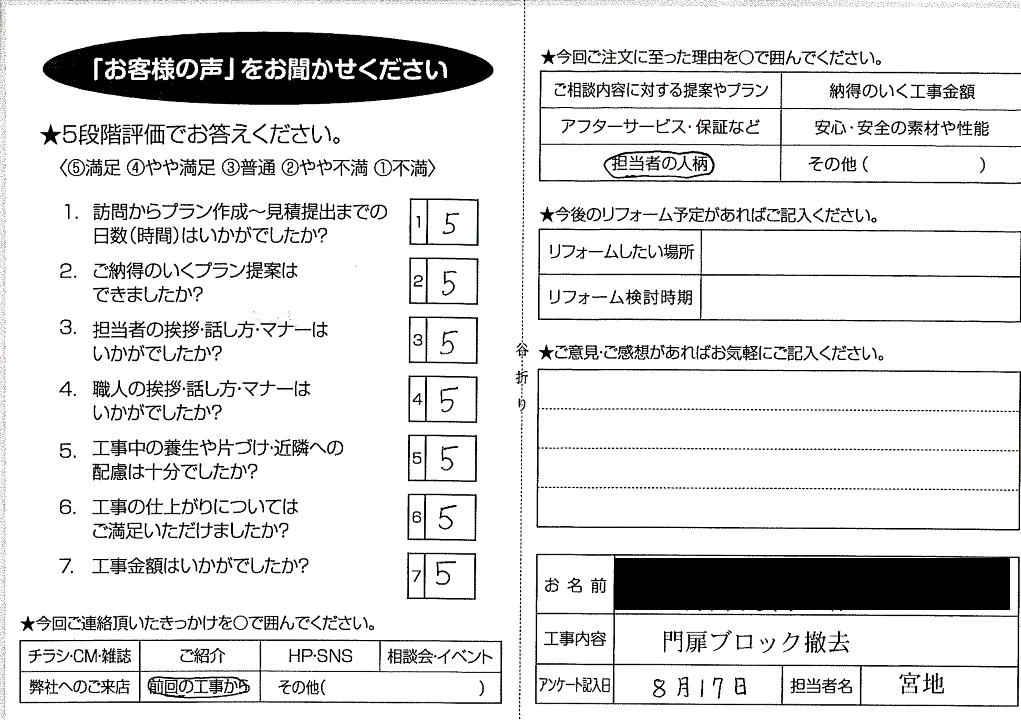 「お客様の声」をお聞かせください
★5段階評価でお答えください。
〈⑤満足 ④やや満足 ③普通 ②やや不満 ①不満〉
1. 訪問からプラン作成〜見積提出までの
日数(時間)はいかがでしたか?
1 5
2. ご納得のいくプラン提案は
できましたか?
2 5
3. 担当者の挨拶・話し方・マナーは
いかがでしたか?
3 5
4. 職人の挨拶・話し方・マナーは
いかがでしたか?
4 5
5. 工事中の養生や片づけ・近隣への
配慮は十分でしたか?
5 5
6. 工事の仕上がりについては
ご満足いただけましたか?
6 5
7. 工事金額はいかがでしたか?
7 5
★今回ご連絡頂いたきっかけを○で囲んでください。
チラシ・CM・雑誌 ご紹介 HP・SNS 相談会・イベント
弊社へのご来店 前回の工事から その他( )
谷折り
★今回ご注文に至った理由を○で囲んでください。
ご相談内容に対する提案やプラン 納得のいく工事金額
アフターサービス・保証など 安心・安全の素材や性能
担当者の人柄 その他( )
★今後のリフォーム予定があればご記入ください。
リフォームしたい場所
リフォーム検討時期
★ご意見・ご感想があればお気軽にご記入ください。
お名前
工事内容 門扉ブロック撤去
アンケート記入日 8月17日 担当者名 宮地